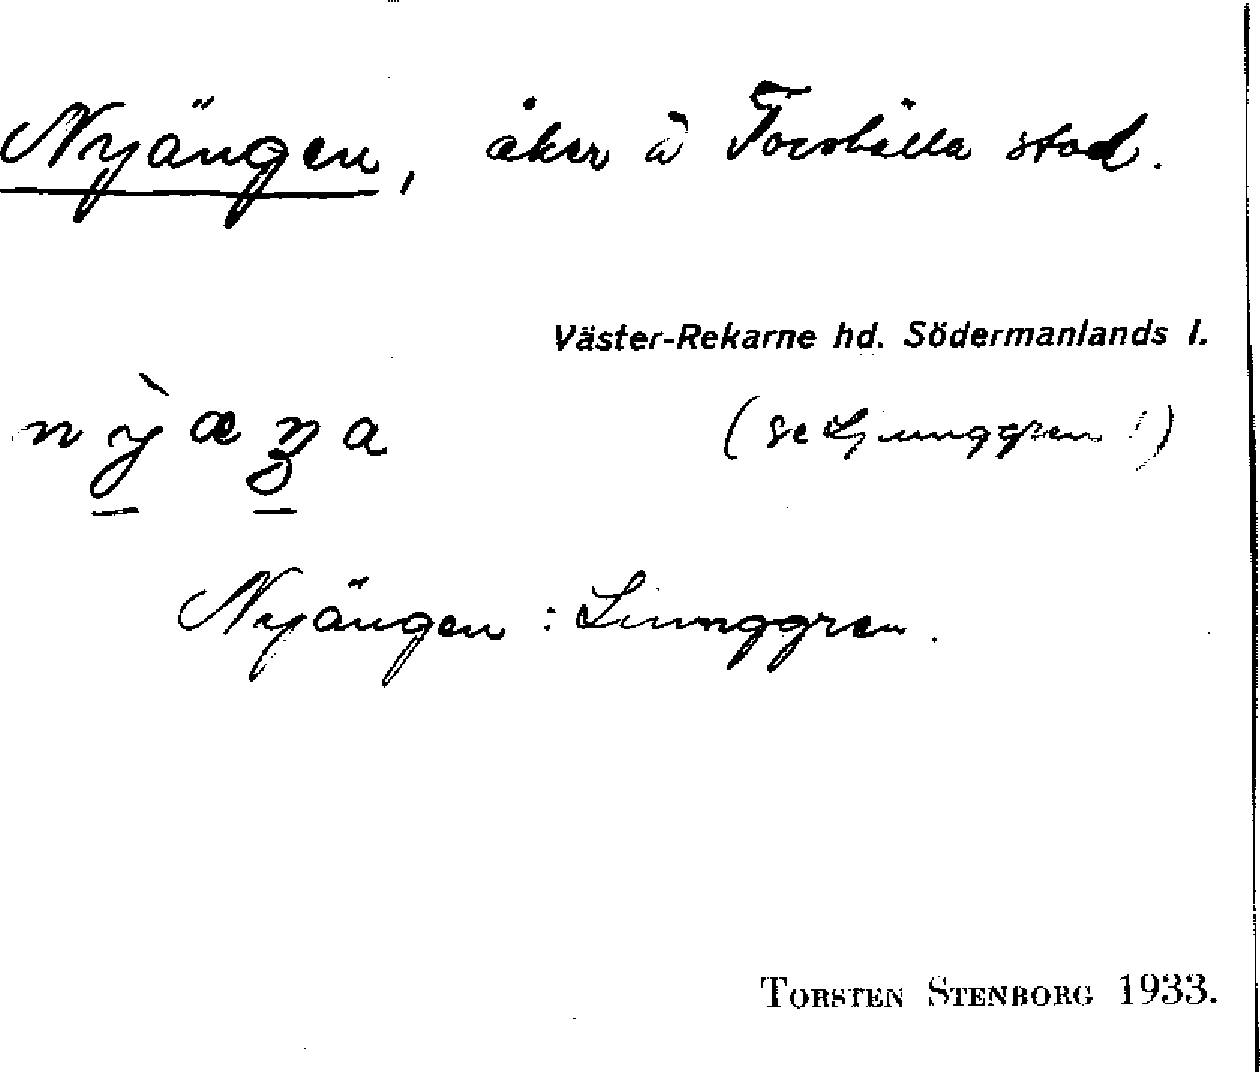 Nyängen, åker å Torshälla stad.
Väster-Rekarne hd. Södermanlands l.
nỳæŋa (se Ljunggren!)
Nyängen : Ljunggren.
TORSTEN STENBORG 1933.